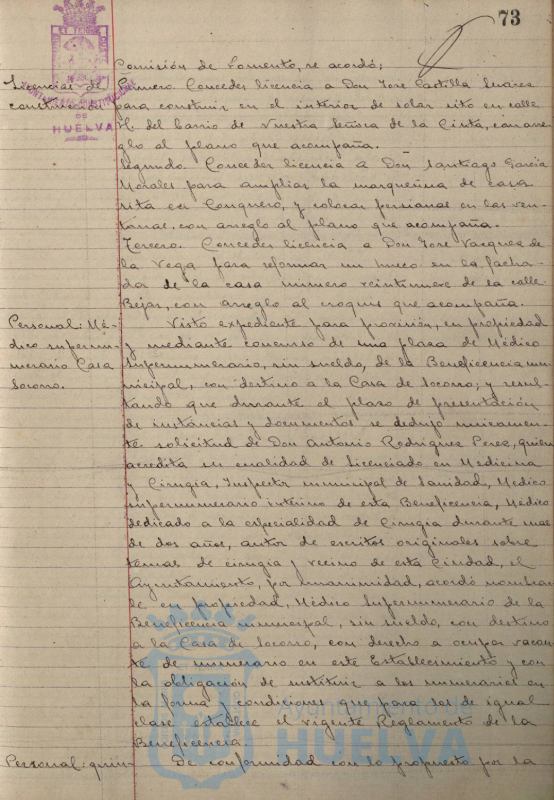 73
Comisión de Fomento, se acordó;
Licencias de
construcción
HUELVA
Primero. Conceder licencia a Don José Castilla Suárez
para construir en el interior de solar sito en calle
H. del Barrio de Nuestra Señora de la Cinta, con arre-
glo al plano que acompaña.
Segundo. Conceder licencia a Don Santiago García
Morales para ampliar la marquesina de casa
sita en Conquero, y colocar persianas en las ven-
tanas, con arreglo al plano que acompaña.
Tercero. Conceder licencia a Don José Vazquez de
la Vega para reformar un hueco en la facha-
da de la casa número veintinueve de la calle
Béjar, con arreglo al croquis que acompaña.
Personal: Mé-
dico supernu-
merario Casa
Socorro.
Visto expediente para provisión, en propiedad
y mediante concurso de una plaza de Médico
supernumerario, sin sueldo, de la Beneficencia mu-
nicipal, con destino a la Casa de Socorro; y resul-
tando que durante el plazo de presentación
de instancias y documentos se dedujo unicamen-
te solicitud de Don Antonio Rodriguez Perez, quien
acredita su cualidad de Licenciado en Medicina
y Cirugía, Inspector municipal de Sanidad, Médico
supernumerario interino de esta Beneficencia, Médico
dedicado a la especialidad de Cirugía durante mas
de dos años, autor de escritos originales sobre
temas de cirugía y vecino de esta Ciudad, el
Ayuntamiento, por unanimidad, acordó nombrar-
le en propiedad, Médico Supernumerario de la
Beneficencia municipal, sin sueldo, con destino
a la Casa de Socorro, con derecho a ocupar vacan-
te de numerario en este Establecimiento y con
la obligación de sustituir a los numerarios en
la forma y condiciones que para los de igual
clase establece el vigente Reglamento de la
Beneficencia.
Ayuntamiento de
HUELVA
Personal: quin-
De conformidad con lo propuesto por la